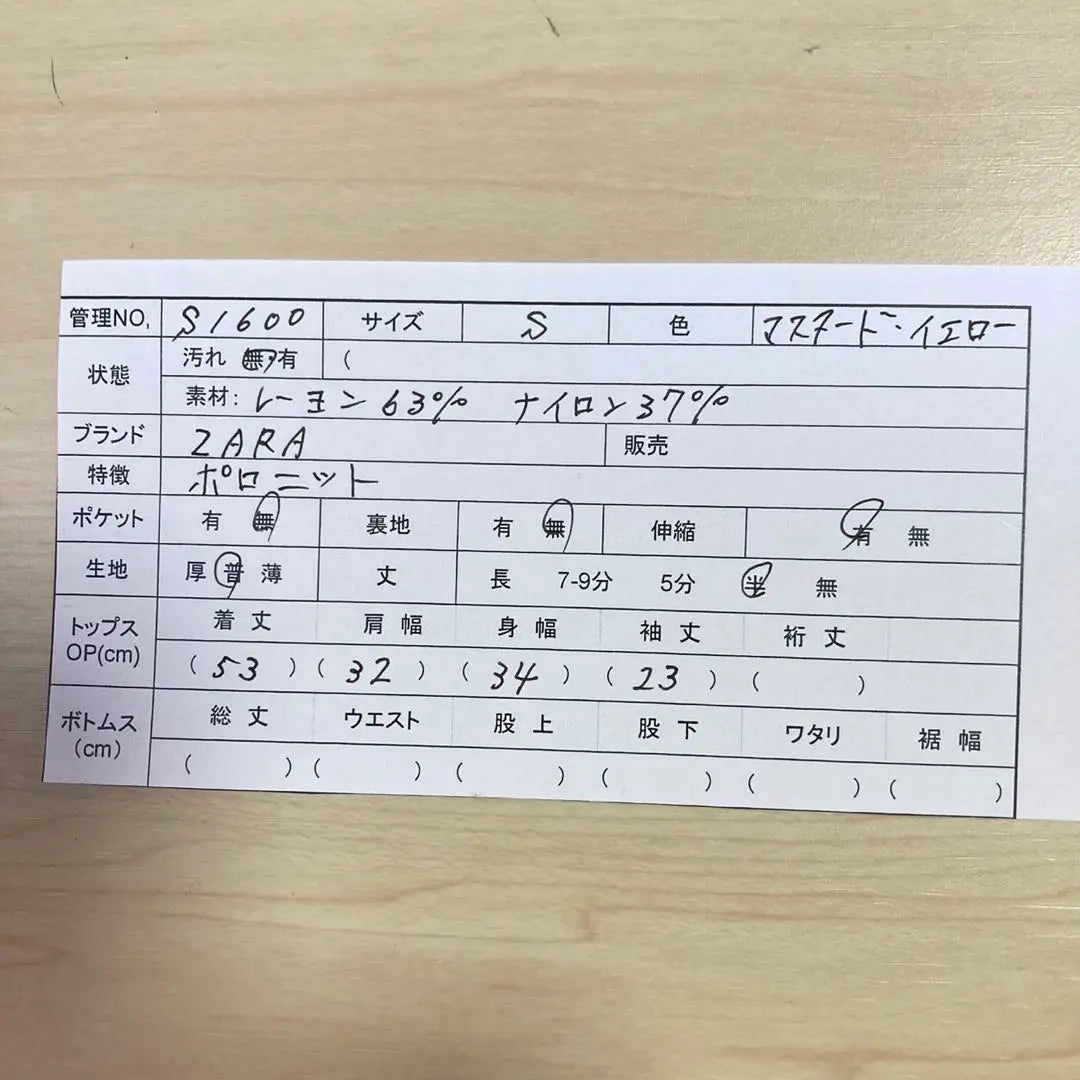 管理NO, S1600 サイズ S 色 マスタード・イエロー
状態 汚れ 無・有 (
素材: レーヨン63% ナイロン37%
ブランド ZARA 販売
特徴 ポロニット
ポケット 有 無 裏地 有 無 伸縮 有 無
生地 厚 普 薄 丈 長 7-9分 5分 半 無
トップス OP(cm) 着丈 肩幅 身幅 袖丈 裄丈
(53) (32) (34) (23) ( )
ボトムス (cm) 総丈 ウエスト 股上 股下 ワタリ 裾幅
( ) ( ) ( ) ( ) ( ) ( )